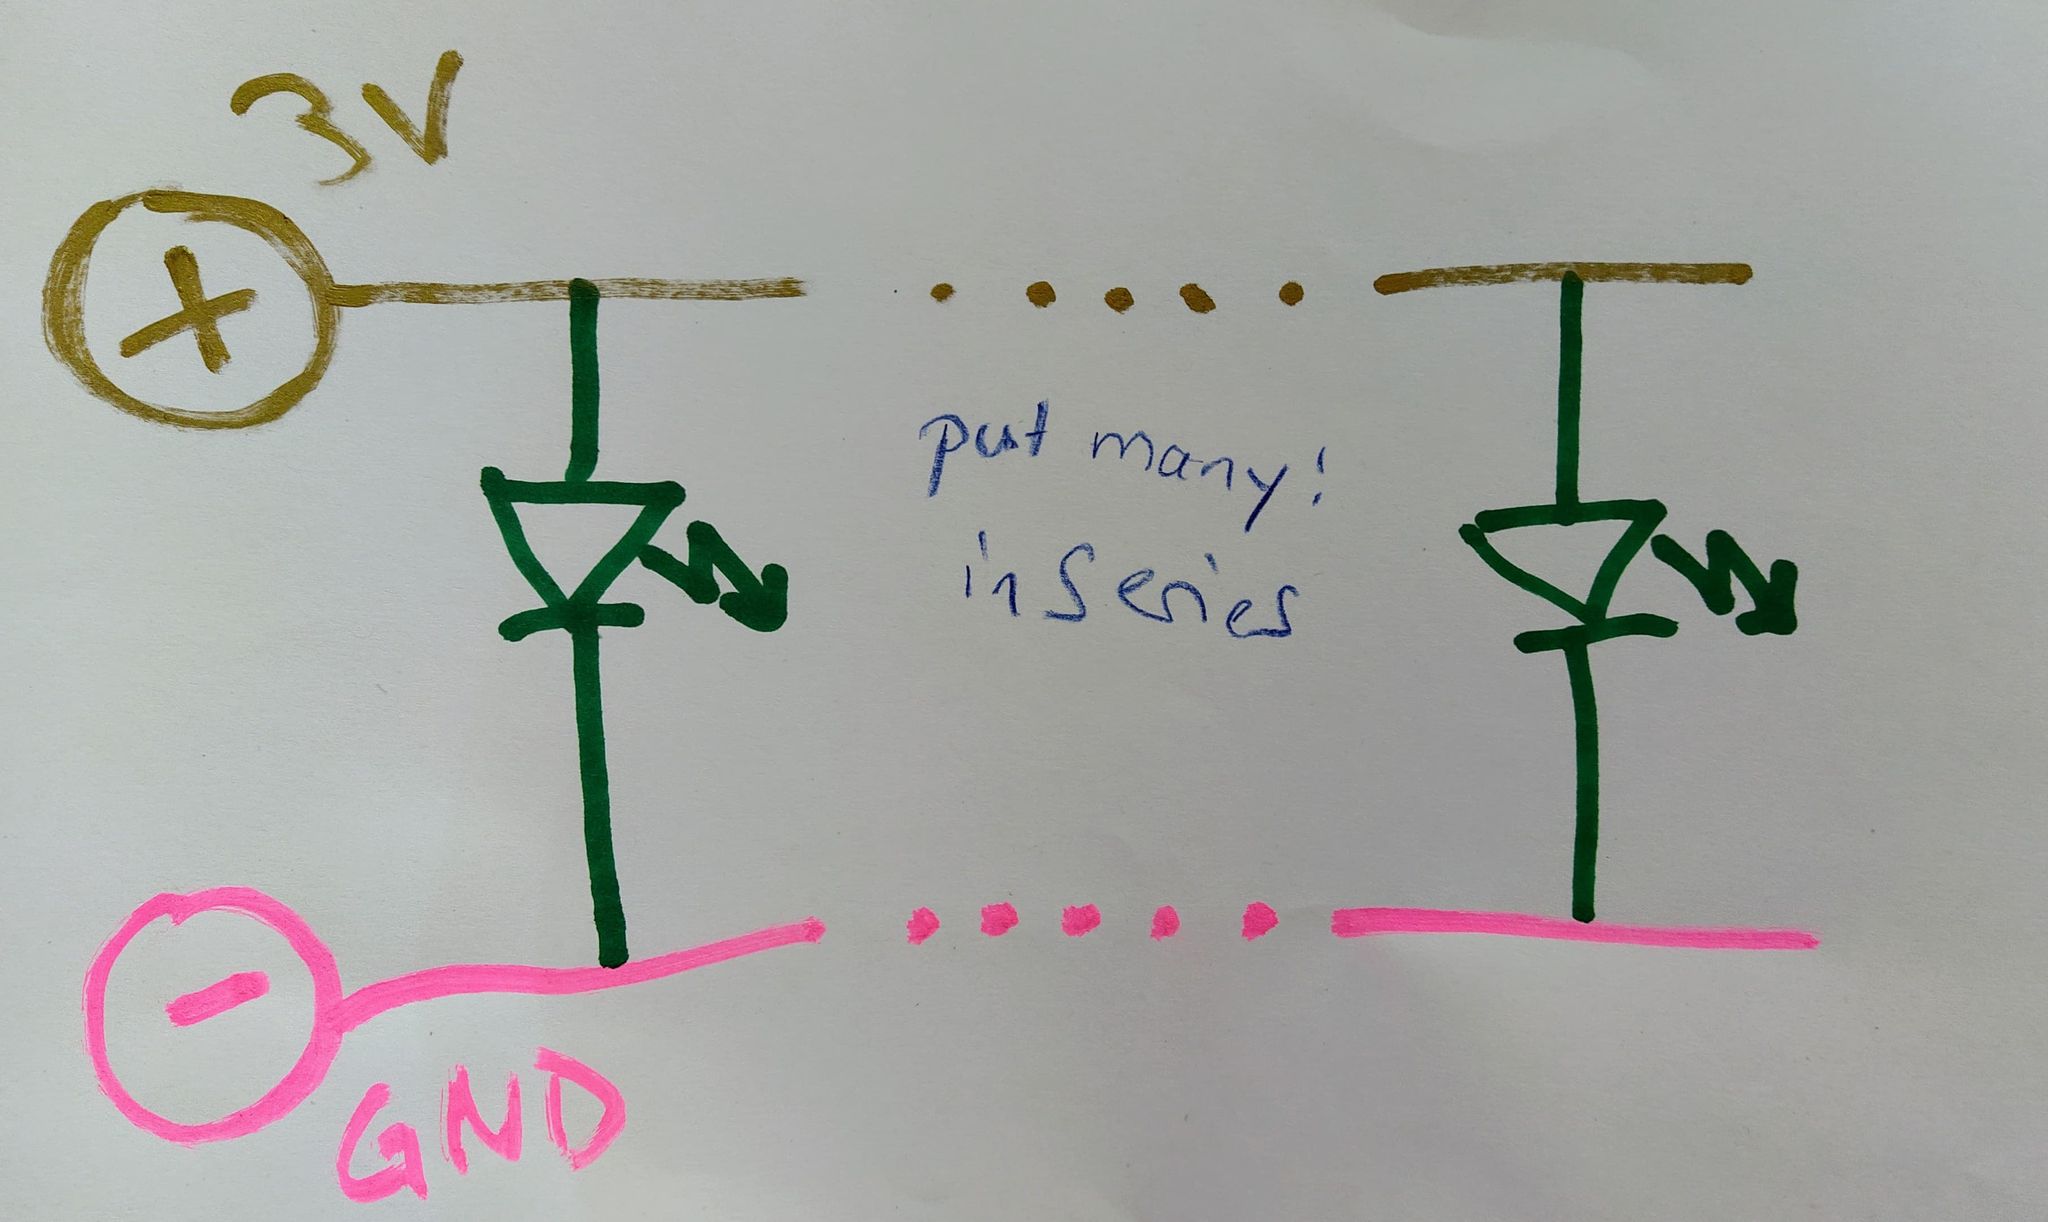 3V
+
put many!
in Series
-
GND